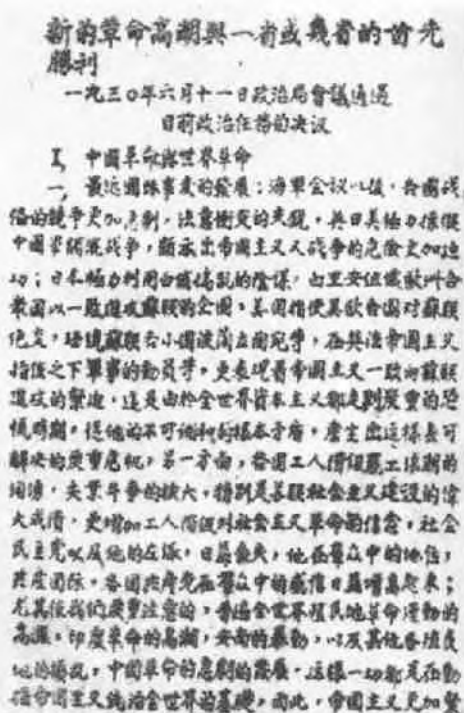 新的革命高潮與一省或幾省的首先
勝利
一九三〇年六月十一日政治局會議通過
目前政治任務的決议
I, 中國革命與世界革命
一, 最近國際事变的發展；海軍会议以後，各國战
備的競爭更加急剧，法意衝突的尖銳，英日美極力
中國軍閥混战争，顯示出帝國主义大战争的危險更加迫
切；日本極力利用白俄
國以一致進攻蘇联的企圖，美國指使墨歌合國对蘇联
绝交，蘇联各小國波蘭立陶宛等，在英法帝國主义
指使之下軍事的動員等，更表現着帝國主义一致向蘇联
進攻的緊迫，這是由於全世界資本主义都走到嚴重的恐
慌時期，使他的不可調和的根本矛盾，產生出這樣無可
解决的嚴重危机，另一方面，各國工人階级罷工浪潮的
汹湧，失業斗爭的擴大，特别是蘇联社会主义建设的偉
大成绩，更增加工人階级对社会主义革命的信念，社会
民主党以及他的左派，日益丧失他在羣众中的地位，
共產國际，各國共產党在羣众中的威信日益增高起來；
尤其使我們嚴重注意的，普遍全世界殖民地革命運動的
高漲，印度革命的高潮，安南的暴動，以及其他各殖民
地的情况，中國革命的急剧的發展，這樣一切都是在動
摇帝國主义统治全世界的基礎，因此，帝國主义更加緊